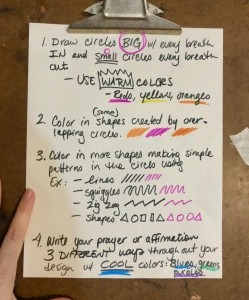 1. Draw circles BIG w/ every breath
IN and small circles every breath
out
- USE WARM COLORS
- Reds, yellows, oranges
(some)
2. Color in shapes created by over-
lapping circles.
3. Color in more shapes making simple
patterns in the circles using
Ex: - lines
- squiggles
- Zig Zag
- shapes
4. Write your prayer or affirmation
3 DIFFERENT ways through out your
design w/ COOL colors: Blues, greens
purples